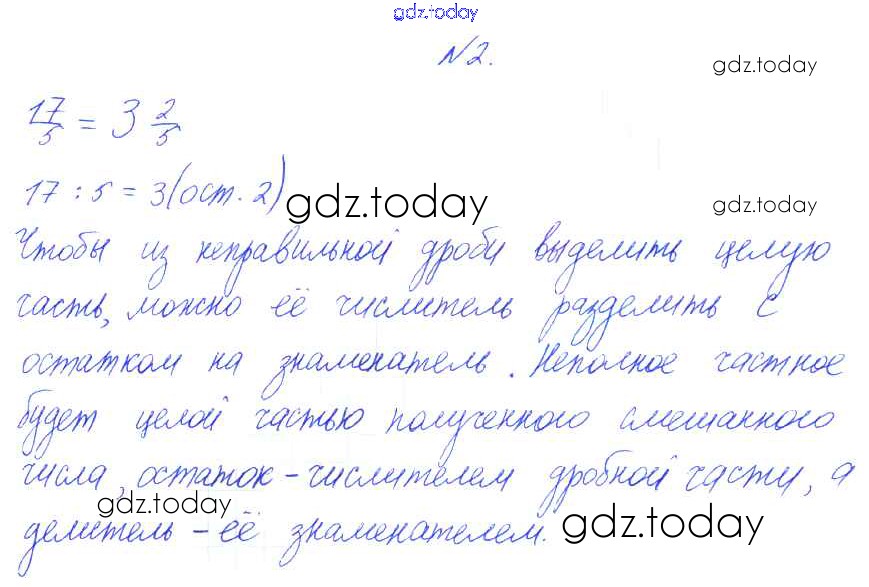 gdz.today
№2.
gdz.today
17/5 = 3 2/5
17 : 5 = 3(ост. 2)
gdz.today
gdz.today
Чтобы из неправильной дроби выделить целую
часть, можно её числитель разделить с
остатком на знаменатель. Неполное частное
будет целой частью полученного смешанного
числа, остаток - числителем дробной части, а
gdz.today
делитель - её знаменателем.
gdz.today